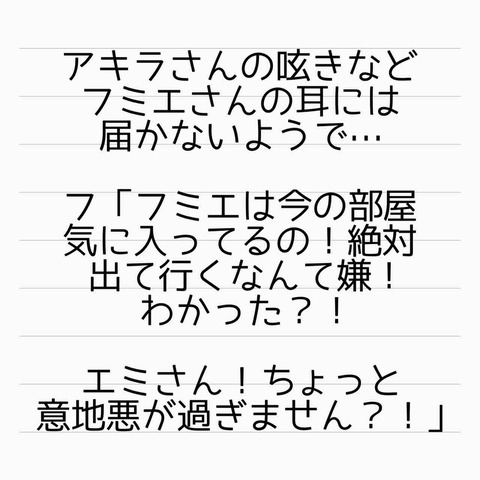 アキラさんの呟きなど
フミエさんの耳には
届かないようで…
フ「フミエは今の部屋
気に入ってるの！絶対
出て行くなんて嫌！
わかった？！
エミさん！ちょっと
意地悪が過ぎません？！」